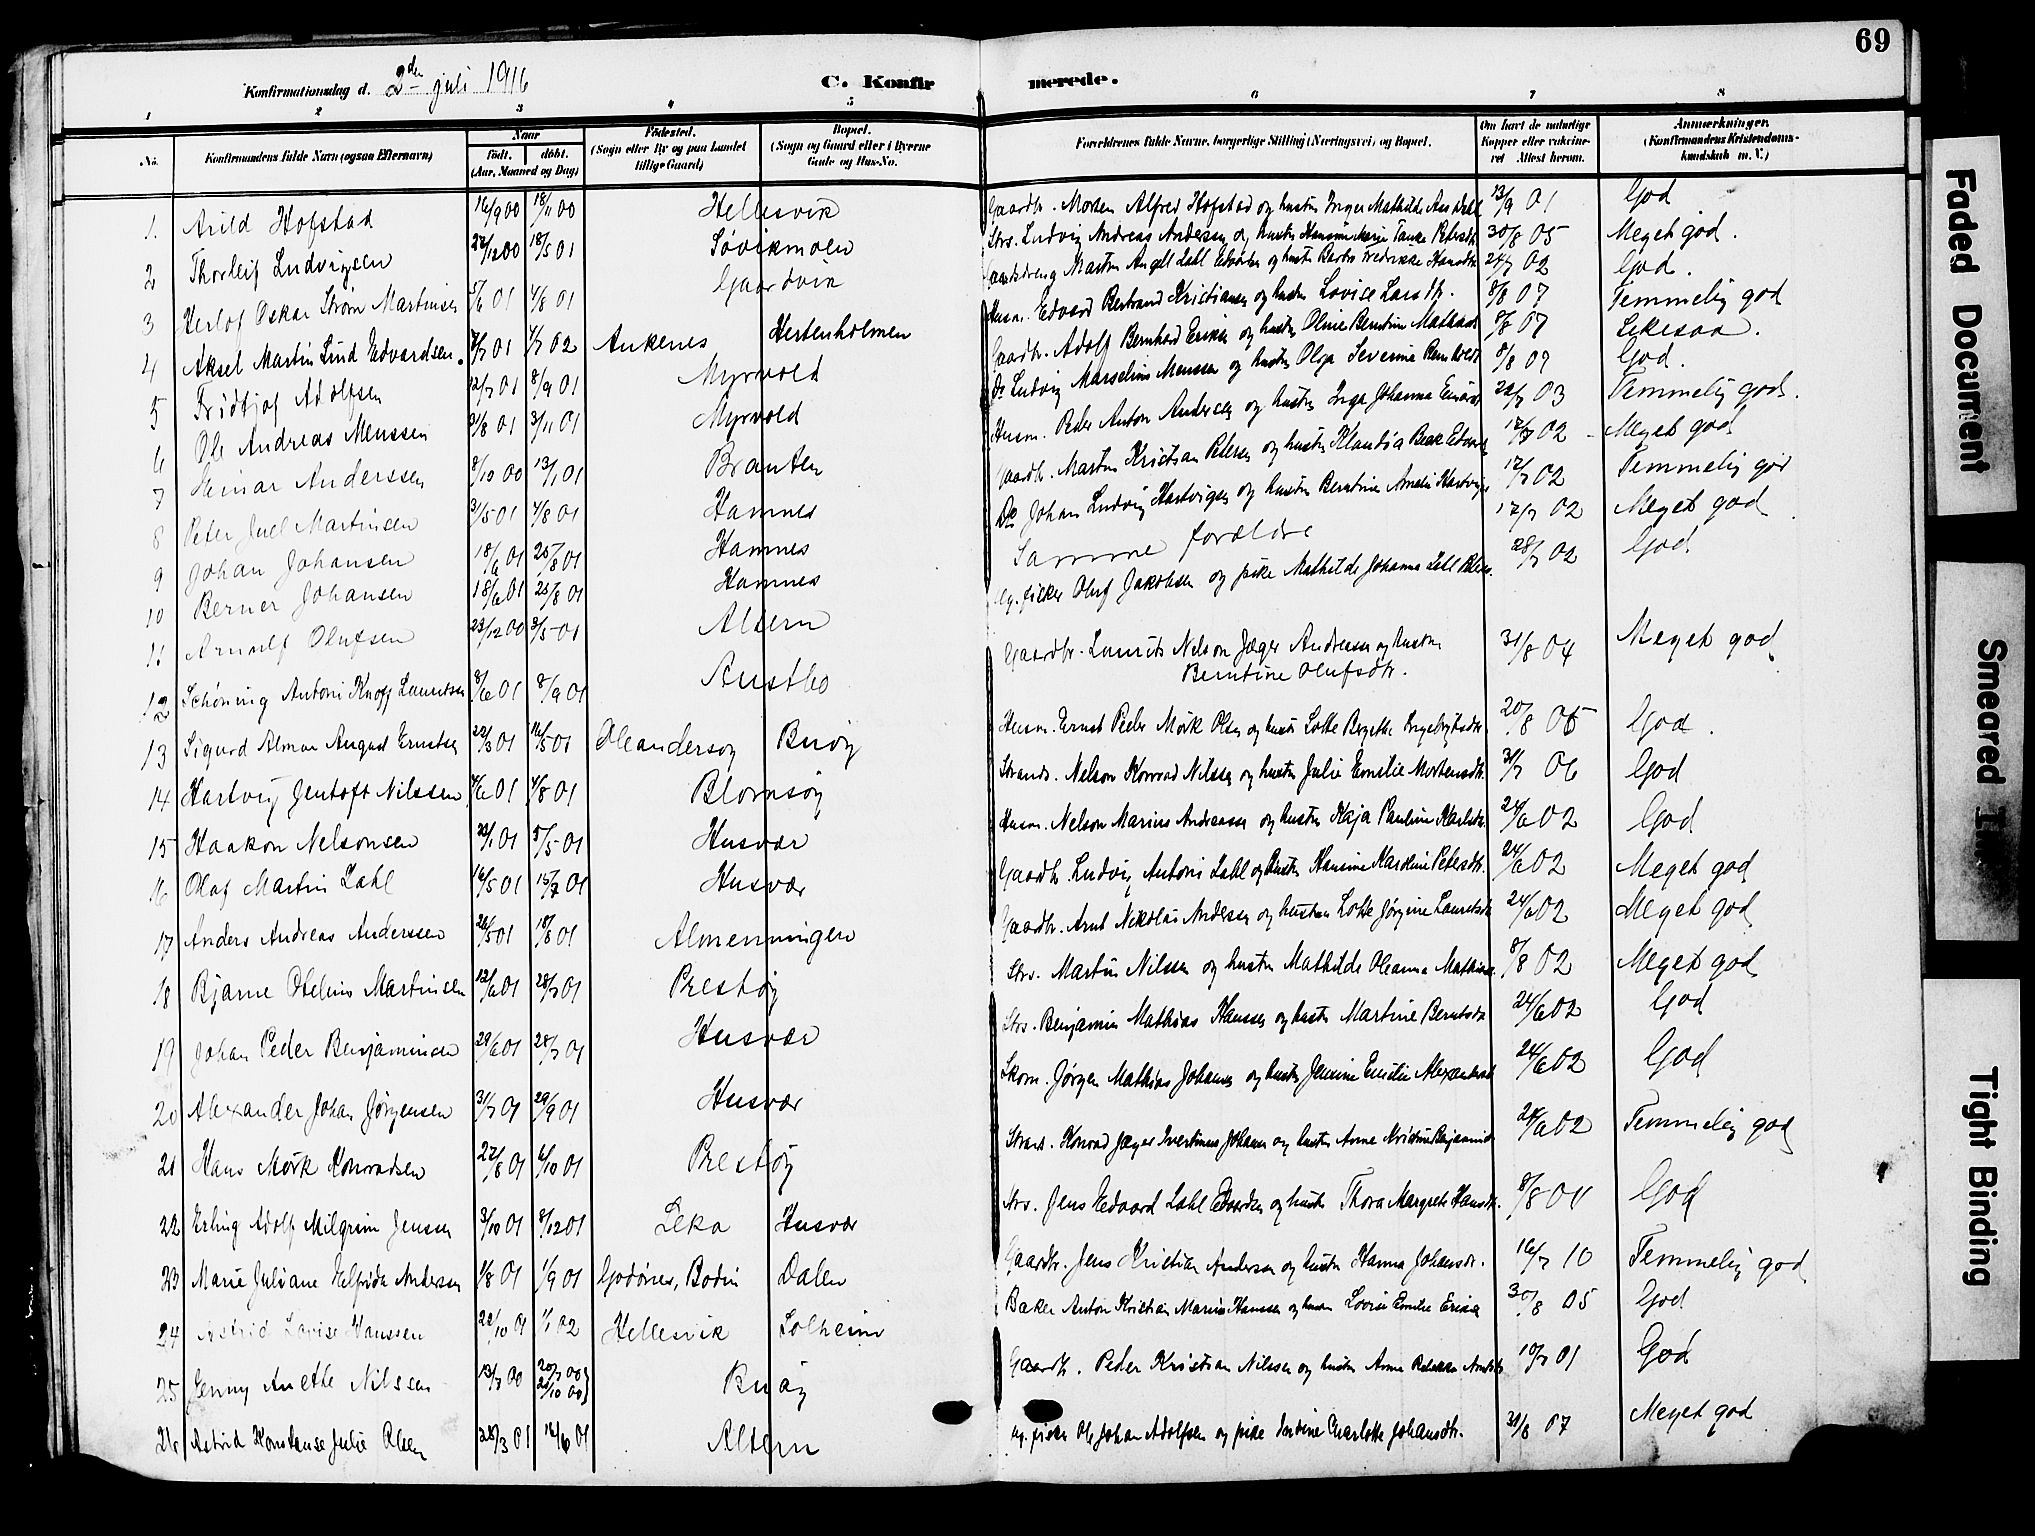 69
Konfirmationsdag d. 2den juli 1916
C. Konfirmerede.
1 2 3 4 5 6 7 8
No. Konfirmandens fulde Navn (ogsaa Efternavn) Naar født. døbt. (Aar, Maaned og Dag) Fødested. (Sogn eller By og paa Landet tillige Gaard) Bopæl. (Sogn og Gaard eller i Byerne Gade og Hus-No. Forældrenes fulde Navne, borgerlige Stilling (Næringsvei) og Bopæl. Om havt de naturlige Kopper eller vakcineret Attest herom. Anmærkninger. (Konfirmandens Kristendomskundskab m. V.)
1. Arild Hofstad 16/9 00 18/11 00 Hellesvik Gaardbr. Morten Alfred Hofstad og hustru Inger Mathilde 13/9 01 God
2 Thorleif Ludvigsen 18/5 01 Søvikmoen Strs. Ludvig Andreas Andersen og hustru 30/8 05 Meget god.
3 Herlof Oskar Strøm Martinsen 5/6 01 4/8 01 Gaardvik Martin Angell Zahl og hustru Fredrikke 24/7 02 God.
4 Aksel Martin Lind Edvardsen. 4/7 01 1/1 02 Ankenes Hestenholmen Husm. Edvard Bertrand Kristiansen og hustru Lovise Larsdtr. 8/8 07 Temmelig god
5 Fridtjof Adolfsen 12/7 01 8/9 01 Myrvold Gaardbr. Adolf Bernhard og hustru Oline Berntine 8/8 07 Likesaa.
6 Ole Andreas Menssen 31/8 01 3/11 01 Myrvold Do Ludvig Marselius Menssen og hustru Olga Severine 8/8 07 God.
7 Heinar Anderssen 8/10 00 13/1 01 Branten Husm. Peder Anton Andersen og hustru Inga Johanna 22/7 03 Temmelig god.
8 Peter Juel Martinsen 31/5 01 4/8 01 Hamnes Gaardbr. Martin Kristian Petersen og hustru 17/7 02 Meget god
9 Johan Johansen 18/6 01 25/8 01 Hamnes Do Johan Ludvig Hartvigsen og hustru Berntine Amalie 17/7 02 Temmelig god
10 Berner Johansen 18/6 01 25/8 01 Hamnes Samme forældre 17/7 02 Meget god
11 Arnulf Olufsen 23/12 00 3/5 01 Altern Ug. fisker Oluf Jakobsen og pike Mathilde Johanna Zahl 28/7 02 God
12 Schøning Antoni Knoff Lauritsen 8/6 01 8/9 01 Austbo Gaardbr. Laurits Nilson Jæger Andreassen og hustru
Berntine Olufsdtr. 31/8 04 Meget god
13 Sigurd Almar August Ernstsen 22/3 01 16/5 01 Oleandersøy Buøy Husm. Ernst Peder Mørk Olsen og hustru Lotte Bergitte 20/8 05 God.
14 Hartvig Jentoft Nilssen 4/6 01 4/8 01 Blomsøy Strands. Nelson Konrad Nilssen og hustru Julie Emelie Mortensdtr. 31/7 06 God
15 Haakon Nelsonsen 5/5 01 Husvær Husm. Nelson Marius Andreassen og hustru Kaja Pauline 24/6 02 God
16 Olaf Martin Zahl 16/5 01 15/7 01 Husvær Gaardbr. Ludvig Antoni Zahl og hustru Hansine Karoline Petersdtr. 24/6 02 Meget god
17 Anders Andreas Anderssen 26/5 01 18/8 01 Almenningen Gaardbr. Arnt Nikolai Andersen og hustru Lotte Jørgine Lauritsdtr 24/6 02 Meget god
18 Bjarne Otelius Martinsen 12/6 01 28/7 01 Prestøy Strs. Martin Nilssen og hustru Mathilde Oleanna 8/8 02 Meget god
19 Johan Peder Benjaminsen 29/6 01 28/7 01 Husvær Strs. Benjamin Mathias Hanssen og hustru Martine Berntsdtr 24/6 02 God
20 Alexander Johan Jørgensen 31/7 01 29/9 01 Husvær Skom. Jørgen Mathias Johansen og hustru Jensine Emilie 24/6 02 God
21 Hans Mørk Konradsen 27/8 01 6/10 01 Prestøy Strand. Konrad Jæger Johansen og hustru Anne Kristine 24/6 02 Temmelig god
22 Erling Adolf Milgrim Jenssen 3/10 01 8/12 01 Leka Husvær Strs. Jens Edvard Zahl Edvardsen og hustru Thora Margrete Hansdtr. 8/8 01 God
23 Marie Juliane Helfrida Andersen 1/8 01 1/9 01 Godønes, Bodin Dalen Gaardbr. Jens Kristian Andersen og hustru Hanna Johansdtr. 16/7 10 Temmelig god
24 Astrid Lovise Hanssen 22/10 01 1/1 02 Hellesvik Solheim Baker Anton Kristian Marius Hanssen og hustru Lovise Emilie 30/8 05 God
25 Jenny Anette Nilssen 13/7 00 20/7 00 21/10 00 Buøy Gaardbr. Peder Kristian Nilssen og hustru Anne Rebekka 10/7 01 God
26 Astrid Konstanse Julie Olsen 28/3 01 16/6 01 Altern Ug. fisker Ole Johan Adolfsen og pike Charlotte Johansdtr. 31/8 07 Meget god
Faded Document
Smeared Ink
Tight Binding